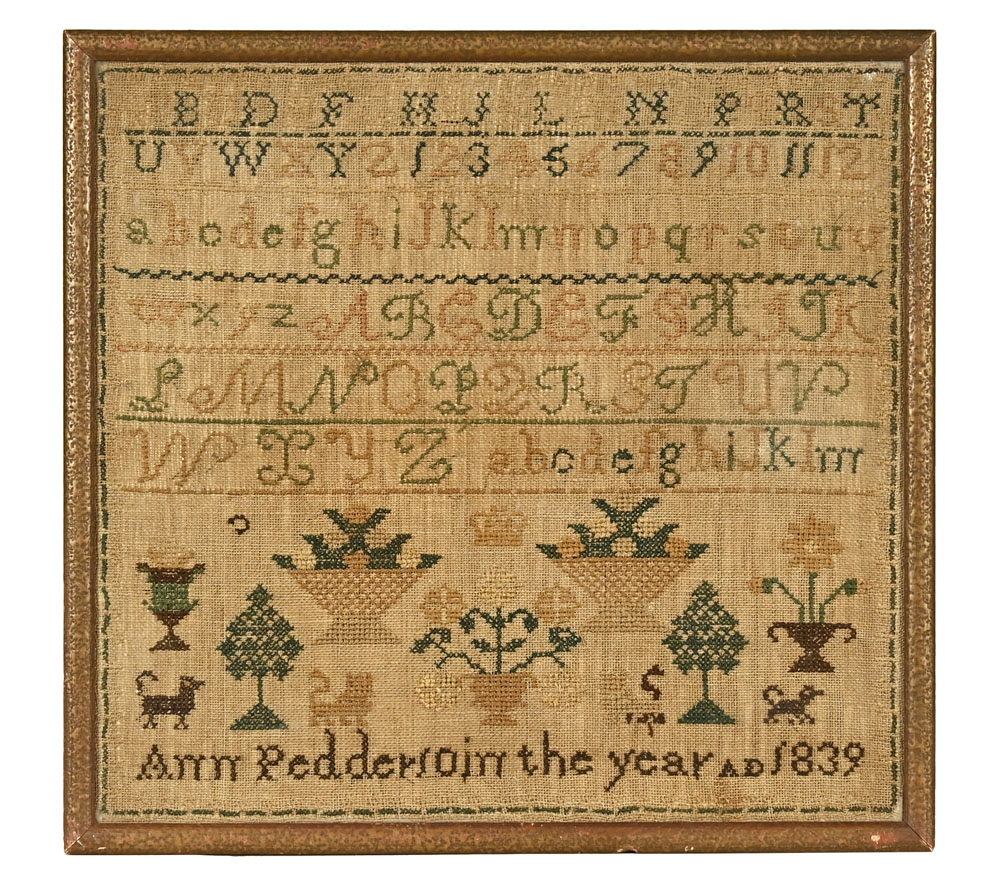 B D F H J L N P R S T
U V W X Y Z 1 2 3 4 5 6 7 8 9 10 11 12
a b c d e f g h i J k l m n o p q r s t u v
w x y z A B C D E F G H I J K
L M N O P Q R S T U V
W X Y Z a b c d e f g h i J k l m
Ann Pedder 10 in the year AD 1839